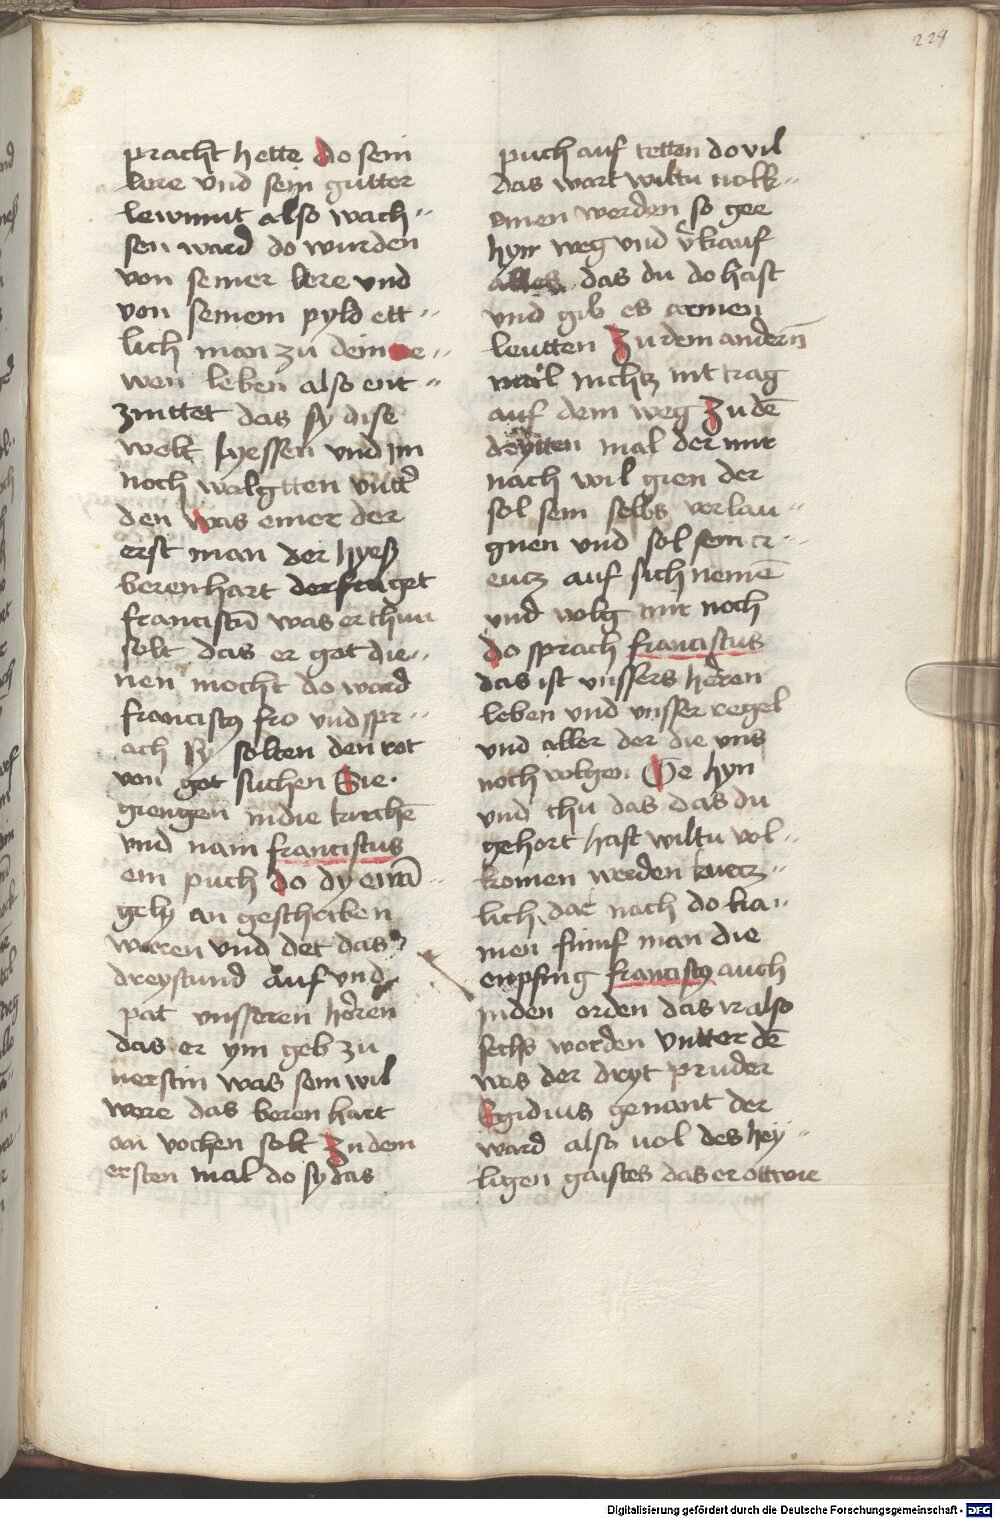 228
pracht hette do sein
lere und sein gutter
lewmut also wach-
sen ward do wurden
von seiner lere und
von seinem pyld ett-
lich man zu dem e-
wen leben also ent-
zuttet das sy dise
welt lyessen und im
noch wolgtten untt
den was einer der
erst man der hyeß
berenhart der fraget
franciscū was er thun
solt das er got die-
nen mocht do ward
franciscus fro und spr-
ach sy solten den rot
von got suchen Sie
giengen in die kirchē
und nam franciscus
ein puch do dy ewā-
gely an geschriben
waren und det das
dreystund auf und
pat unsseren heren
das er ym geb zu
uerstin was sein wil
were das beren hart
an vochen solt Zu dem
ersten mal do sy das
puch auf tetten do vil
das wort wiltu uolk-
omen werden so gee
hyn weg und v̄kauf
alles das du do hast
und gib es armen
leutten Zu dem andern
mal nichtz nit trag
auf dem weg Zu dē
dreytten mal der mir
nach wil gien der
sol sein selbs verlau-
gnen und sol sein cr-
eucz auf sich nemē
und volg mir noch
do sprach franciscus
das ist unssers heren
leben und unsser regel
und aller der die uns
noch volgen Ge hyn
und thu das das du
gehort hast wiltu vol-
komen werden kurcz-
lich dar nach do ka-
men funf man die
enpfing franciscus auch
in den orden das ir also
sechs worden Untter dē
was der dryt pruder
Egidius genant der
ward also uol des hey-
ligen gaistes das er ottwie
Digitalisierung gefördert durch die Deutsche Forschungsgemeinschaft - DFG